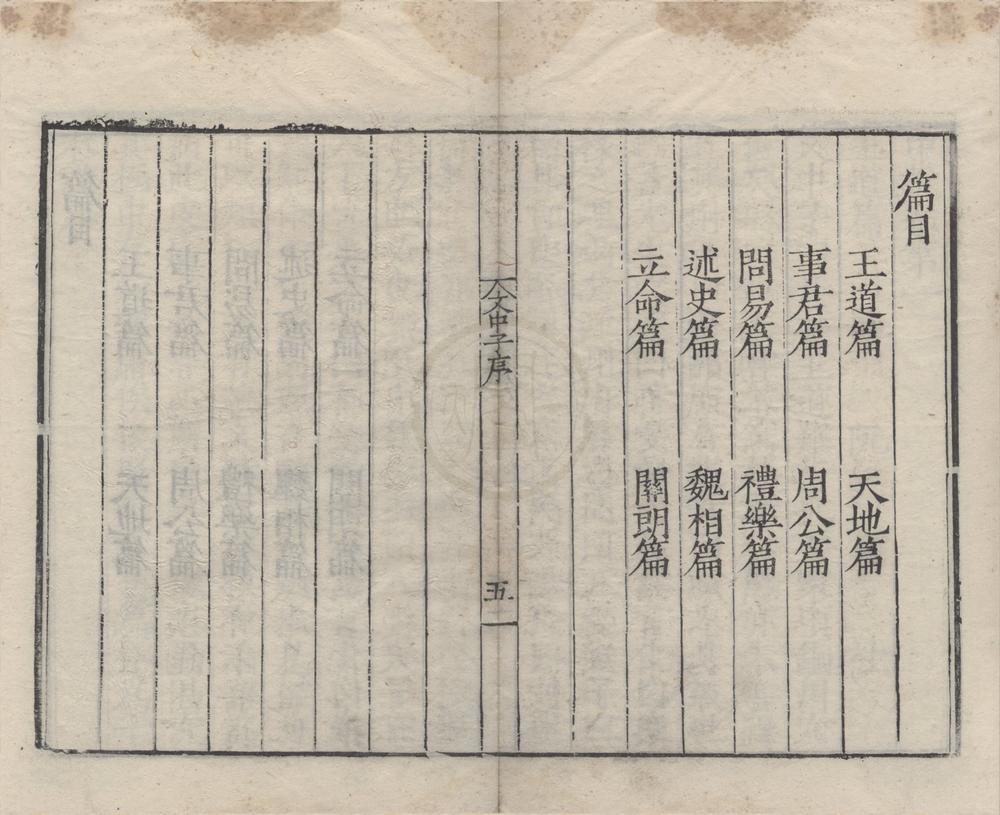 篇目
王道篇　天地篇
事君篇　周公篇
問易篇　禮樂篇
述史篇　魏相篇
立命篇　關朗篇
文中子序　五